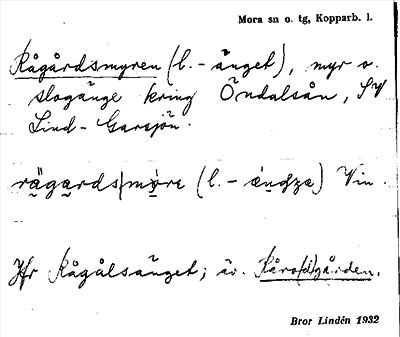 Mora sn o. tg, Kopparb. l.
Rågårdsmyren (l. - änget), myr o.
slogänge kring Öndalsån, SV
Lind-Garsjön.
Vin.
Jfr Rågålsänget; äv. Råro(d)gården.
Bror Lindén 1932